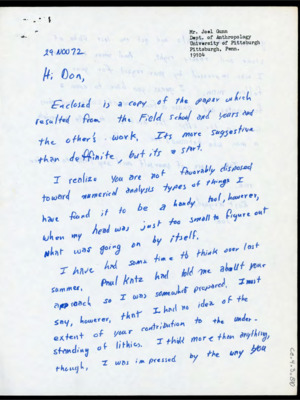 Mr. Joel Gunn
Dept. of Anthropology
University of Pittsburgh
Pittsburgh, Penn.
19104
29 NOV 72
Hi Don,
Enclosed is a copy of the paper which
resulted from the Field school and yours and
the other's work. Its more suggestive
than deffinite, but its a start.
I realize you are not favorably disposed
toward numerical analysis types of things I
have found it to be a handy tool, however,
when my head was just too small to figure out
what was going on by itself.
I have had some time to think over last
summer. Paul Katz had told me about your
approach so I was somewhat prepared. I must
say, however, that I had no idea of the
extent of your contribution to the under-
standing of lithics. I think more than anything,
though, I was impressed by the way you